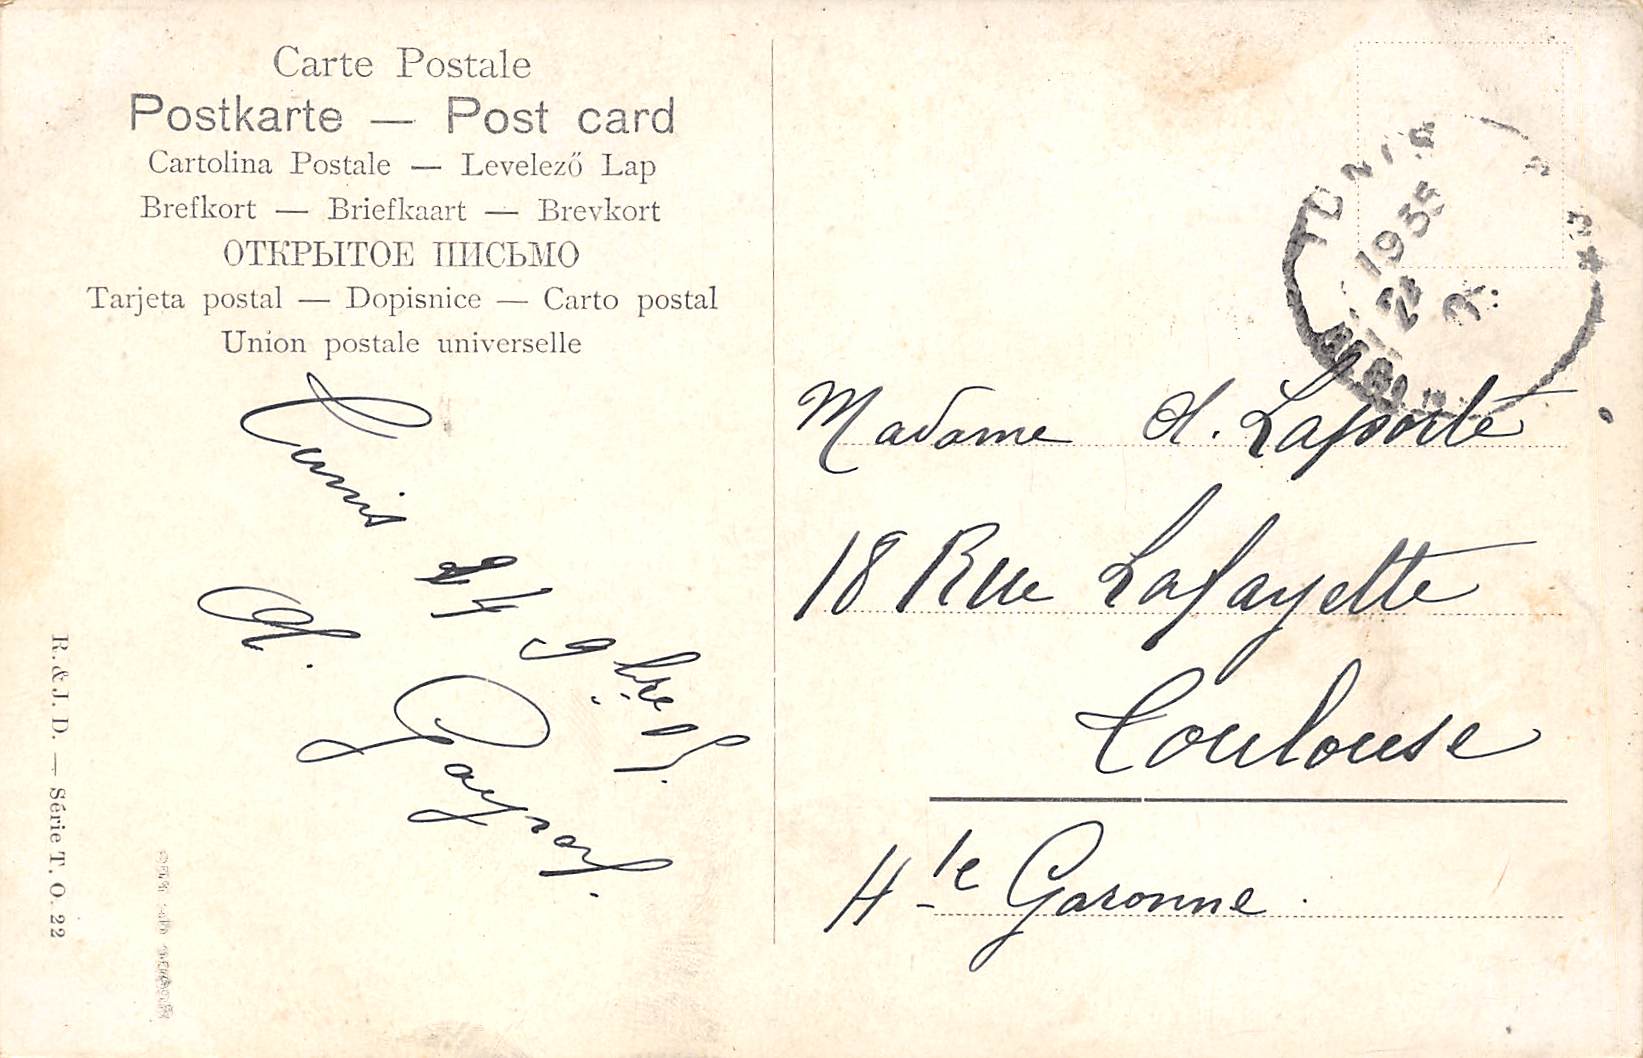 Carte Postale
Postkarte — Post card
Cartolina Postale — Levelező Lap
Brefkort — Briefkaart — Brevkort
ОТКРЫТОЕ ПИСЬМО
Tarjeta postal — Dopisnice — Carto postal
Union postale universelle
Tunis
9bre
R. & J. D. — Série T. O. 22
TUNIS
1935
21
Madame A. Laporte
18 Rue Lafayette
Toulouse
Hte Garonne.